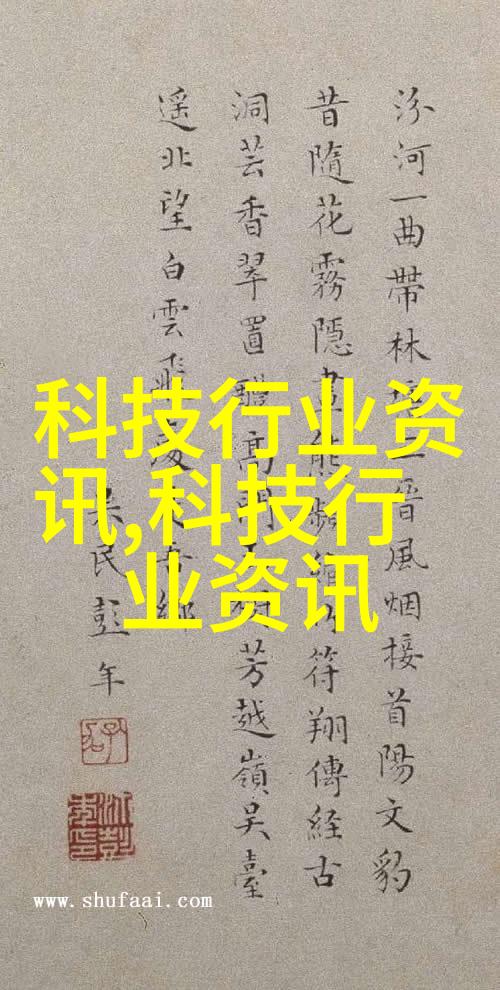 汾河一曲帶林 晋風烟接首陽文豹
昔隨花霧隱 能 符翔傳經古
洞芸香翠置 高 芳越嶺吴臺
遥北望白雲飛
吴民彭年
科技行业资
讯,科技行
业资讯
www.shufaai.com